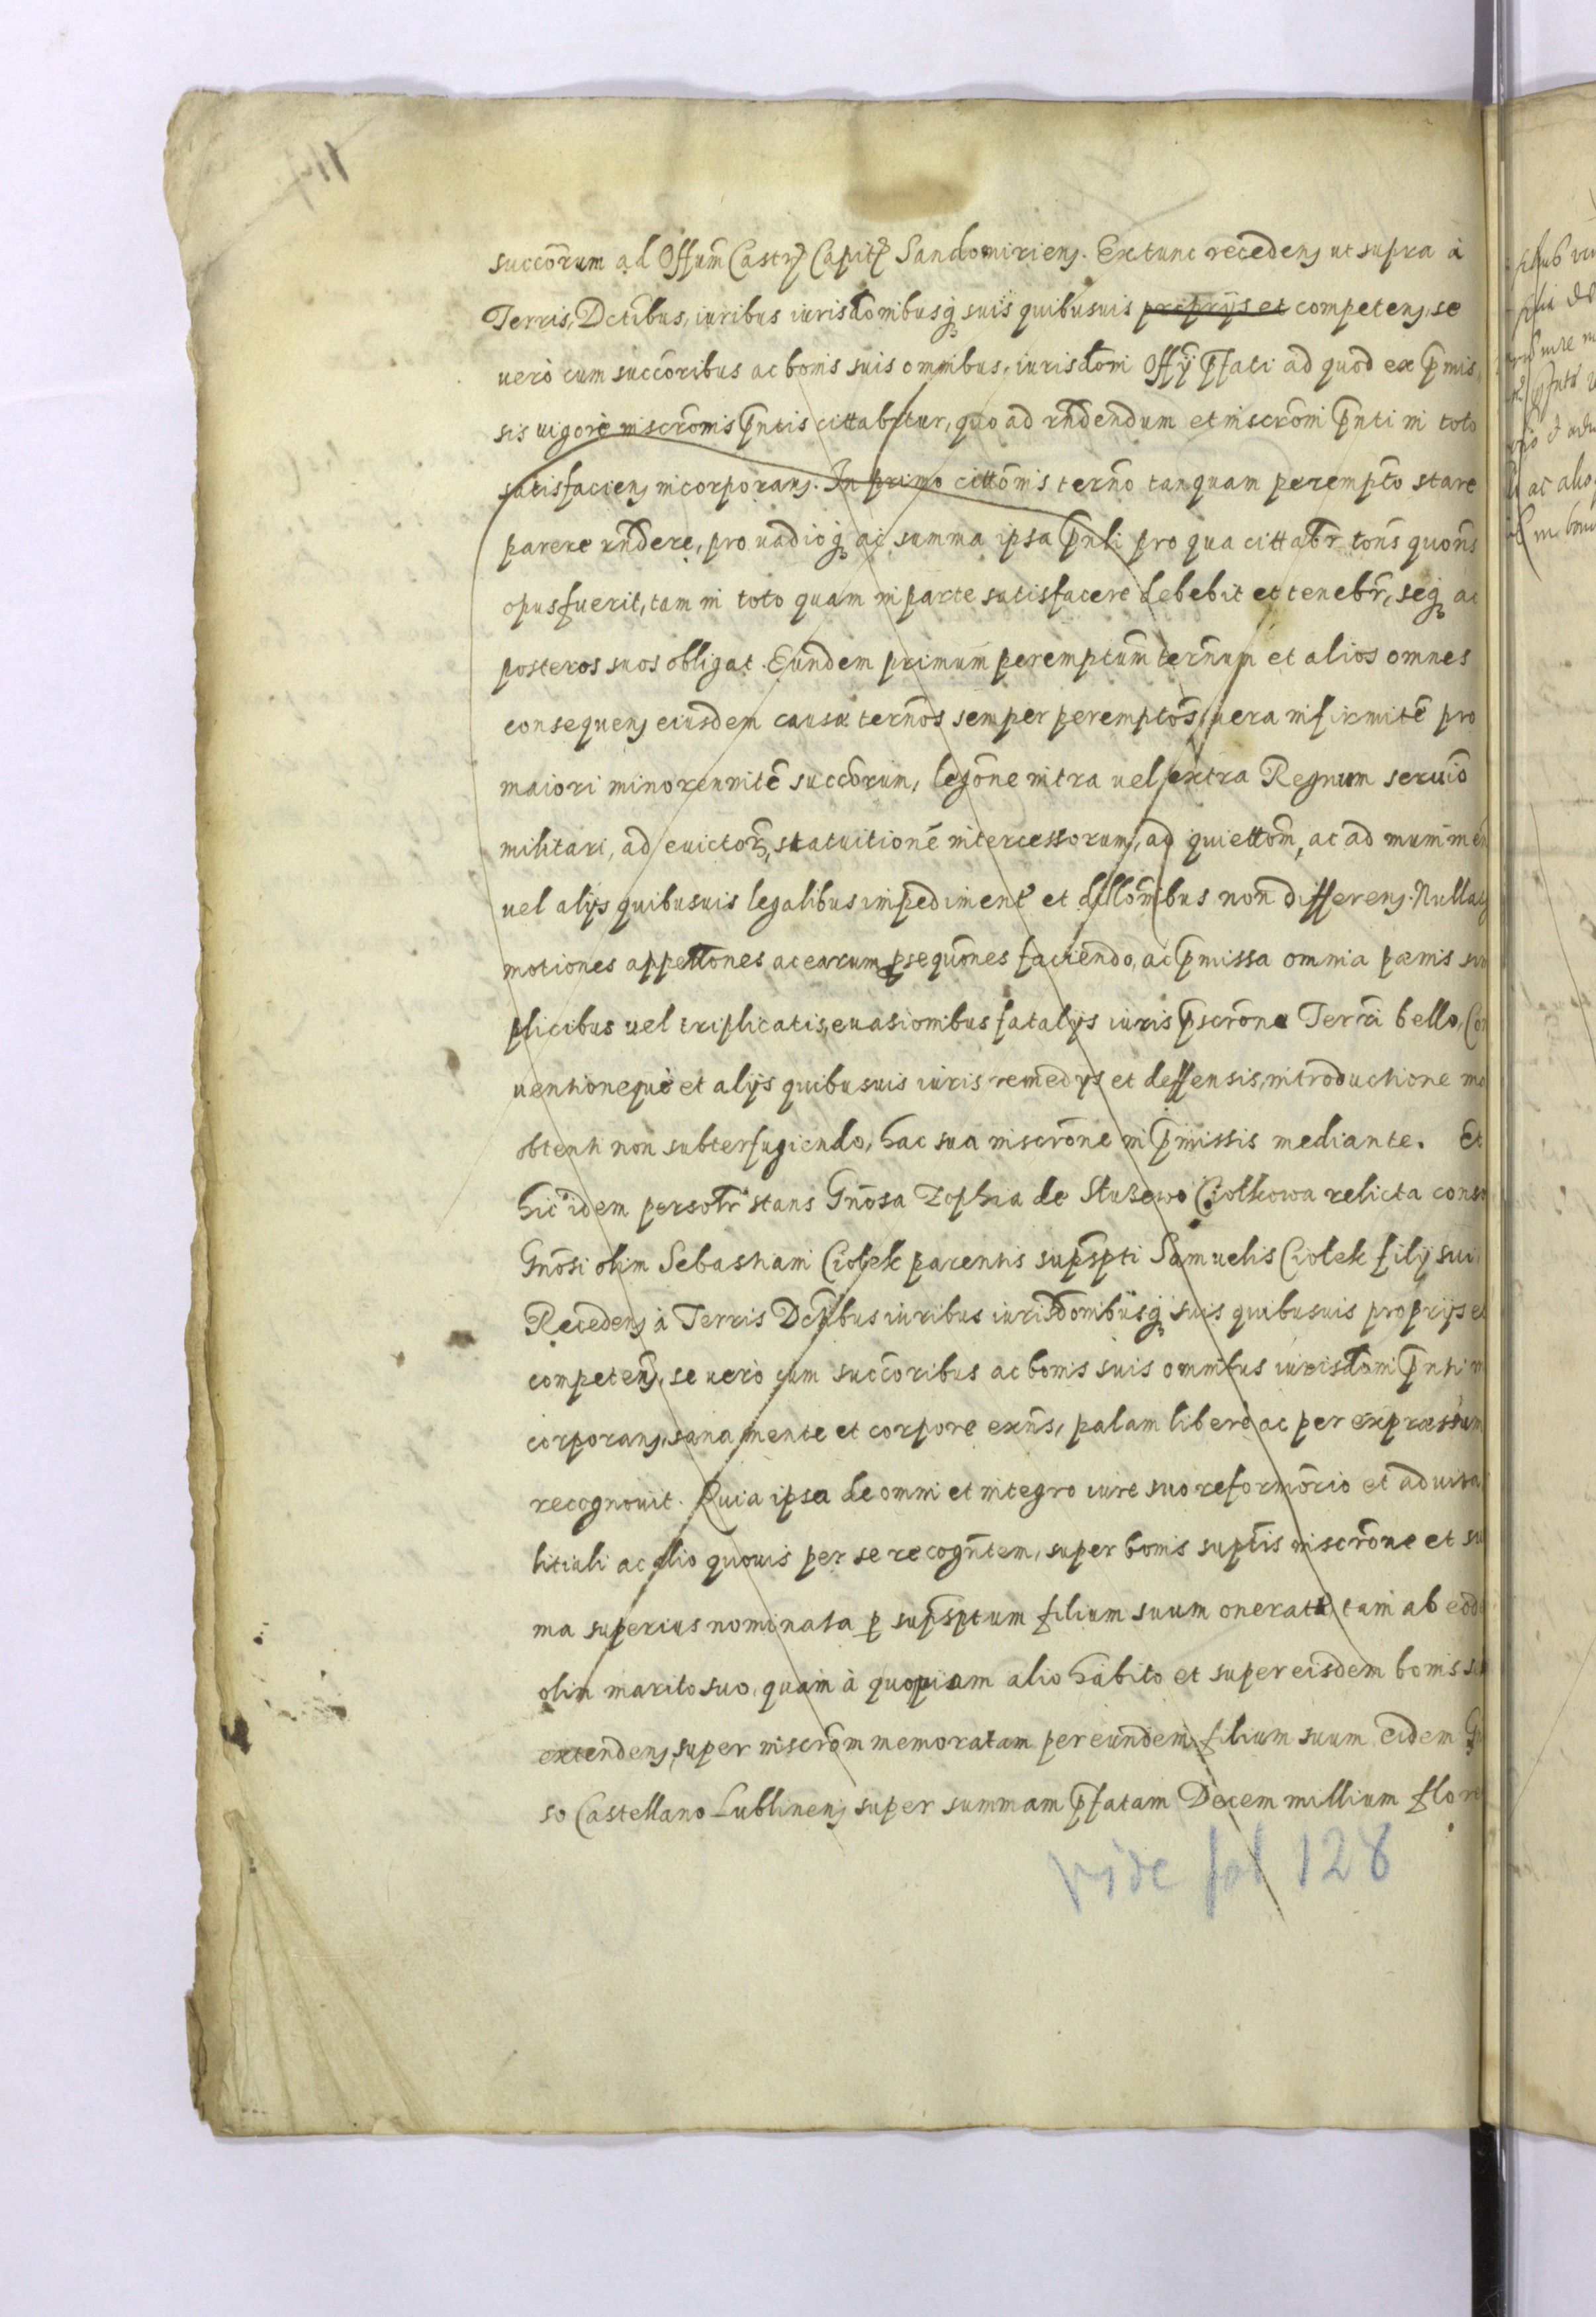 succōrum ad Offūm Castrꝫ Capitꝫ Sandomirienꝫ. Extunc recedenꝫ ut supra à
Terris, Dctībus, iuribus iurisd̄onibusqꝫ suis quibusuis proprÿs et competenꝫ, se
uerò cum succōribus ac bonis suis omnibus, iurisd̄oni Offÿ p̄fati ad quod ex p̄mis
sis uigore inscrōnis p̄ntis cittabitur, quo ad rn̄dendum et inscrōni p̄nti in toto
satisfacienꝫ incorporanꝫ. In primo cittōnis ternō tanquam peremptō stare
parere rn̄dere, pro uadioqꝫ ac summa ipsa p̄nti pro qua cittabr̄ tōns quōns
opus fuerit, tam in toto quam in parte satisfacere debebit et tenebr̄, seqꝫ ac
posteros suos obligat. Eundem primum peremptūm ternūm et alios omnes
consequenꝫ eiusdem causæ ternōs semper peremptōs, uera infirmitē pro
maiori minorennitē succōrum, legōne intra uel extra Regnum seruiō
militari, ad euictorꝫ, statuitionē intercessorum, ad quiettōm, ac ad munimen
uel alÿs quibusuis legalibus impediment̄ et dillōnibus non differenꝫ. Nullasqꝫ
motiones appellt̄ones ac earum ꝓsequōnes faciendo, ac p̄missa omnia pænis
plicibus uel triplicatis, euasionibus fatalÿs iuris p̄scrōne Terræ bello, Con
uentioneque et alÿs quibusuis iuris remedÿs et deffensis, introductione
obtenti non subterfugiendo, hac sua inscrōne in p̄missis mediante. Et
hic idem personlr̄ stans Gnōsa Zophia de Stużewo Ciołkowa relicta
Gnōsi olim Sebastiani Ciołek parentis supsp̄ti Samuelis Ciołek filÿ sui.
Recedenꝫ à Terris Dctībus iuribus iurisd̄onibusqꝫ suis quibusuis proprÿs et
competenꝫ, se uerò cum succōribus ac bonis suis omnibus iurisd̄oni p̄nti in
corporanꝫ, sana mente et corpore exn̄s, palam liberè ac per expræssum
recognouit. Quia ipsa de omni et integro iure suo reformōrio et aduita
litiali ac alio quouis per se recogn̄tem, super bonis supt̄is inscrōne et sum
ma superius nominata ꝑ supsp̄tum filium suum oneratis, tam ab eodem
olim marito suo, quam à quopiam alio habito et super eisdem bonis
extendenꝫ, super inscrōm memoratam per eundem filium suum eidem
so Castellano Lublinenꝫ super summam p̄fatam Decem millium flore
vide fol 128